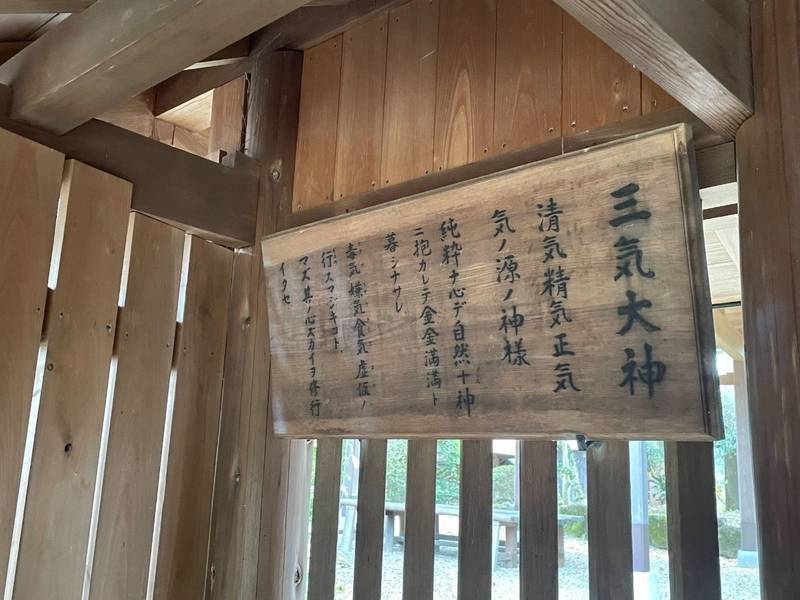 三気大神
清気精気正気
気ノ源ノ神様
純粋ナ心デ自然十神
ニ抱カレテ金金満満ト
暮シナサレ
毒気嫌気食気虚仮ノ
行スマジキコト、
マズ其ノ心ズカイヲ修行
イタセ